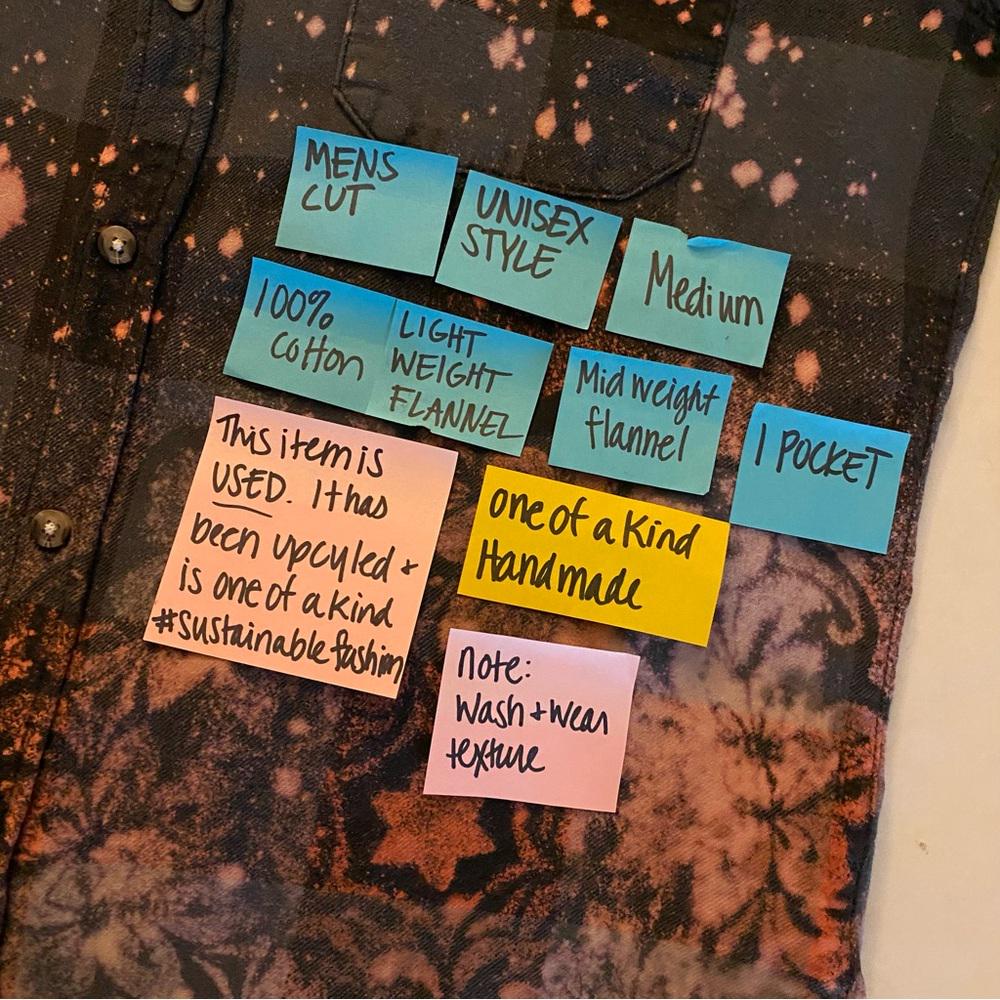 MENS
CUT
UNISEX
STYLE
Medium
100%
cotton
LIGHT
WEIGHT
FLANNEL
Mid weight
flannel
1 POCKET
This item is
USED. It has
been upcyled +
is one of a kind
#sustainablefashion
one of a kind
Handmade
note:
Wash + wear
texture